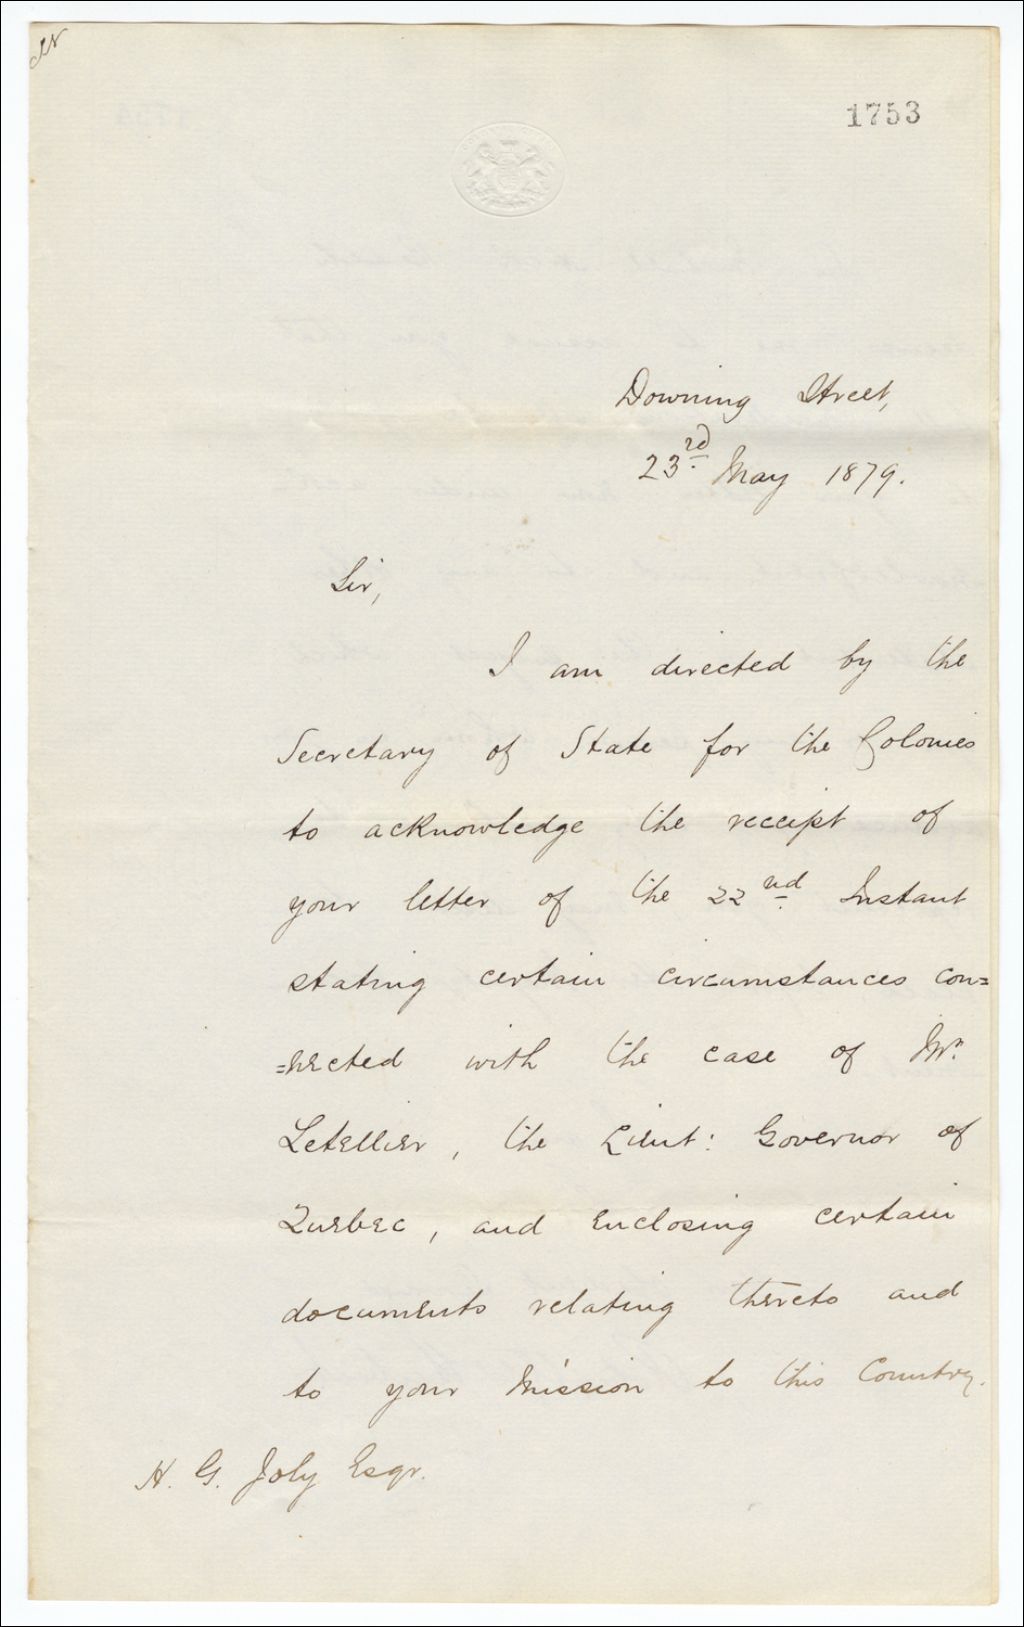 1753
Downing Street,
23rd May 1879.
Sir,
I am directed by the
Secretary of State for the Colonies
to acknowledge the receipt of
your letter of the 22nd Instant
stating certain circumstances con=
=nected with the case of Mr.
Letellier, the Lieut: Governor of
Quebec, and enclosing certain
documents relating thereto and
to your Mission to this Country.
H. G. Joly Esqr.